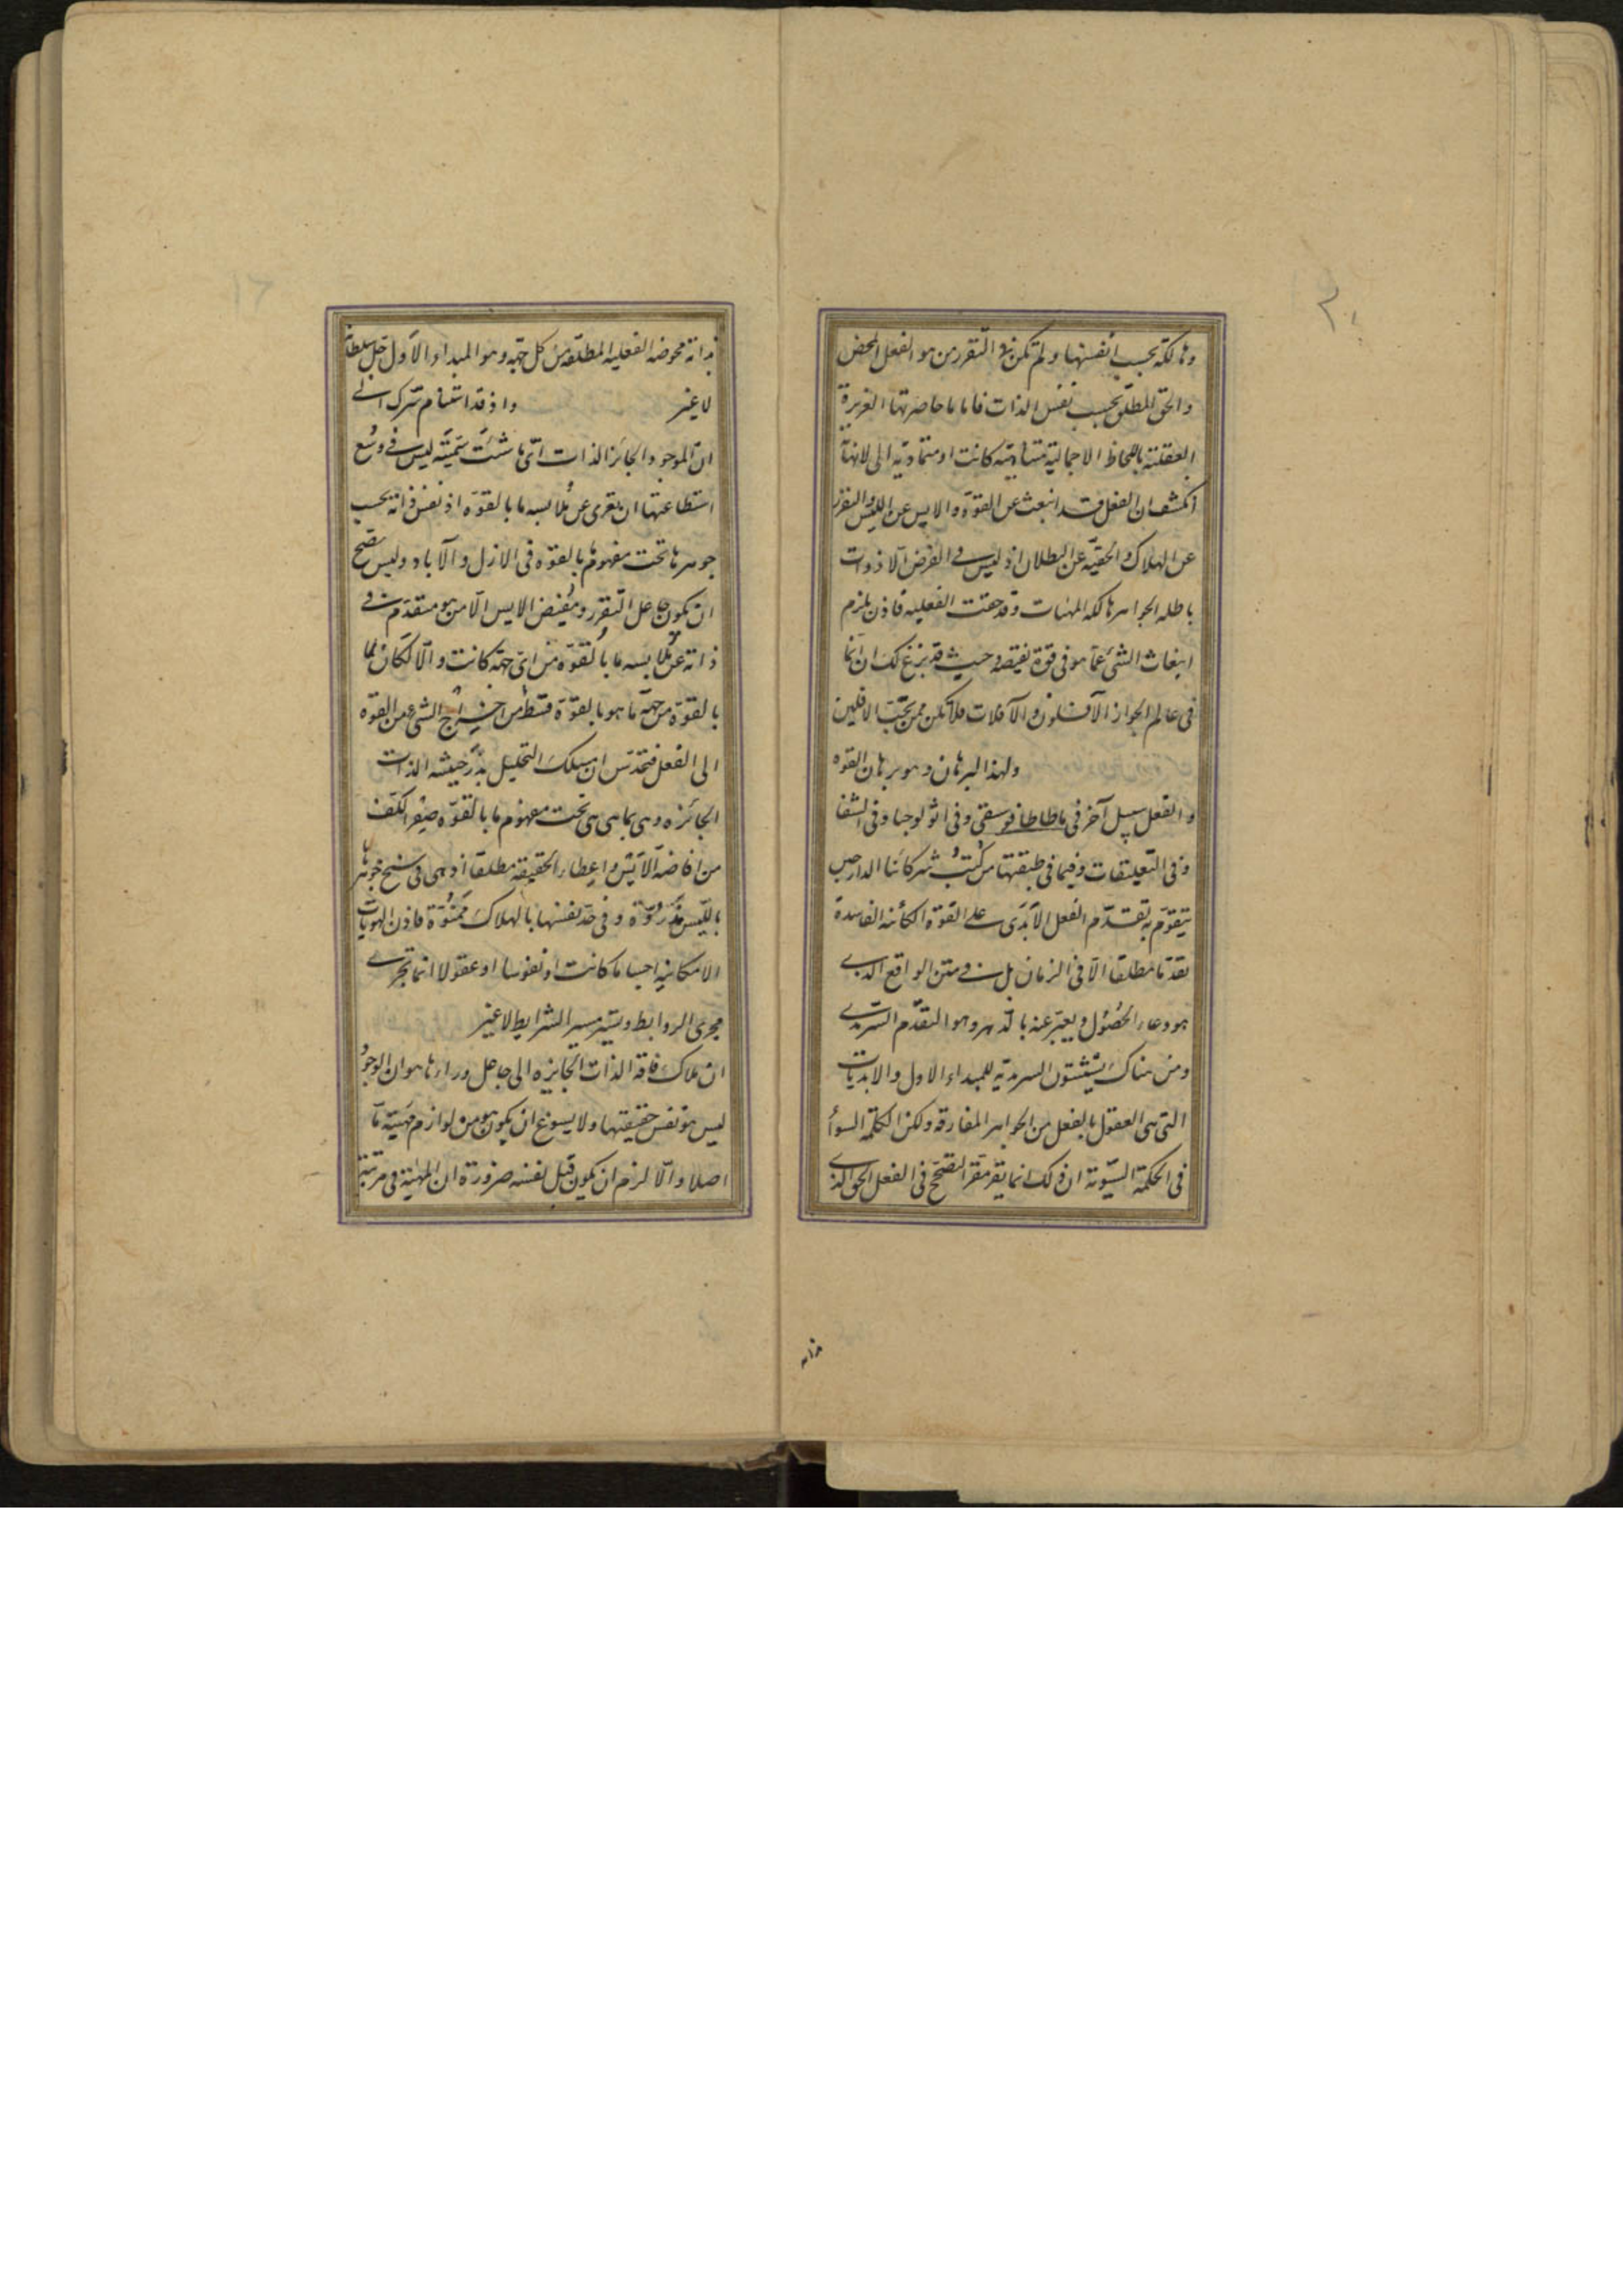 وهالكة بحسب أنفسها ولم تكن بدو التقرر من هو الفعل المحض
والحق المطلق بحسب نفس الذات فاما ما حاصرتها الغريزة
العقلية باللحاظ الاجمالية متناهية كانت او متمادية الى لانهاية
انكشف ان الفعل قد انبعث عن القوة والايس عن الليس والتقرر
عن الهلاك والحقية عن البطلان اذ ليس في الفرض الا ذوات
باطلة الجواهر هالكة المهيات وقد حقت الفعلية فاذن يلزم
انبعاث الشئ عما هو في قوة نقيضه وحيث قد بزغ لك ان انما
في عالم الجواز الآفلون والآفلات فلا تكن ممن يحب الافلين
ولهذا البرهان وهو برهان القوة
والفعل سبيل آخر في ماطاطافوسيقى وفي اثولوجيا وفي الشفا
وفي التعليقات وفيما في طبقتها من كتب شركائنا الدارجين
يتقوم بتقدم الفعل الأبدى على القوة الكائنة الفاسدة
تقدما مطلقا لا في الزمان بل في متن الواقع الذى
هو وعاء الحصول ويعبر عنه بالدهر وهو التقدم السرمدى
ومن هناك يثبتون السرمدية للمبداء الاول والابديات
التى هى العقول بالفعل من الجواهر المفارقة ولكن الكلمة السواء
فى الحكمة السوية ان ذلك انما يقر مقر التصحح فى الفعل الحق الذى
بذاته محوضة الفعلية المطلقة من كل جهة وهو المبداء الأول جل سلطانه
لا غير واذ قد استنام سرك الى
ان الموجود الجائز الذات اى ما شئت سميته ليس في وسع
استطاعتها ان يعرى عن ملابسة ما بالقوة اذ نفس ذاته بحسب
جوهرها تحت مفهوم ما بالقوة فى الازل والآباد وليس يصح
ان يكون جاعل التقرر ومفيض الايس الا من هو متقدم في
ذاته عن ملابسة ما بالقوة من اى جهة كانت والا لكان لما
بالقوة من جهة ما هو بالقوة قسط من اخراج الشى من القوة
الى الفعل فتحدس ان مسلك التحليل بدر حيثية الذات
الجائزة وهى بما هى هى تحت مفهوم ما بالقوة صفر الكف
من افاضة الأيس واعطاء الحقيقة مطلقا اذ هى فى سنخ جوهرها
بالليس مذروة وفى حد نفسها بالهلاك ممنوة فاذن الهويات
الامكانية اجساما كانت او نفوسا او عقولا انما تجرى
مجرى الروابط وتسير مسير الشرايط لا غير
ان ملاك فاقة الذات الجايزة الى جاعل وراءها هو ان الوجود
ليس هو نفس حقيقتها ولا يسوغ ان يكون هو من لوازم مهية ما
اصلا والا لزم ان يكون قبل نفسه ضرورة ان المهية فى مرتبة